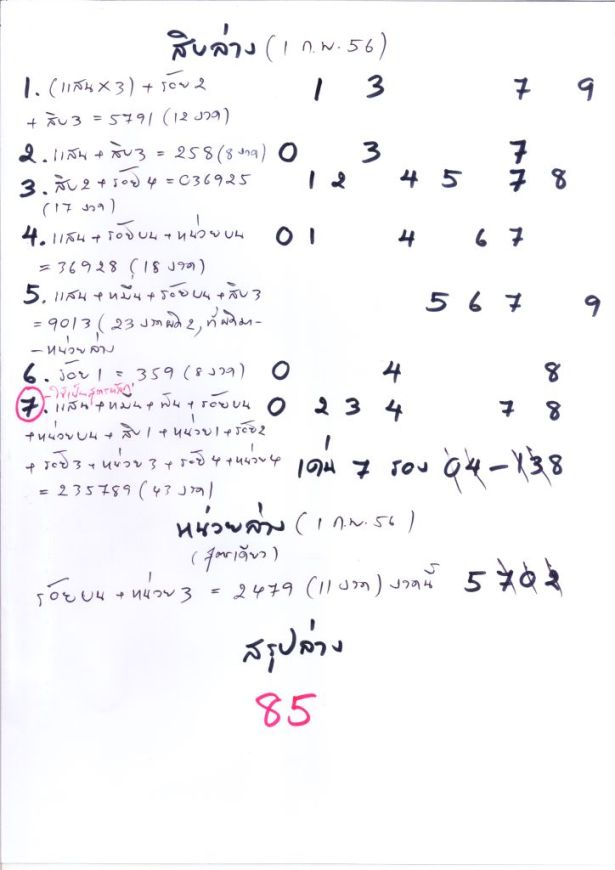 สิบล่าง (1 ก.พ. 56)
1. (แสน×3) + ร้อย2 1 3 7 9
+ สิบ3 = 5791 (12 งวด)
2. แสน + สิบ3 = 258 (8 งวด) 0 3 7
3. สิบ2 + ร้อย4 = 036925 1 2 4 5 7 8
(17 งวด)
4. แสน + ร้อยบน + หน่วยบน 0 1 4 6 7
= 36928 (18 งวด)
5. แสน + หมื่น + ร้อยบน + สิบ3 5 6 7 9
= 9013 (23 งวดผิด2, ที่ผิดมา-
-หน่วยล่าง
6. ร้อย1 = 359 (8 งวด) 0 4 8
-ใช้เป็นสูตรหลัก
7. แสน + หมื่น + พัน + ร้อยบน 0 2 3 4 7 8
+หน่วยบน + สิบ1 + หน่วย1 + ร้อย2
+ ร้อย3 + หน่วย3 + ร้อย4 + หน่วย4 เด่น 7 รอง 04-138
= 235789 (43 งวด)
หน่วยล่าง (1 ก.พ. 56)
(สูตรเดียว)
ร้อยบน + หน่วย3 = 2479 (11 งวด) งวดนี้ 5702
สรุปล่าง
85